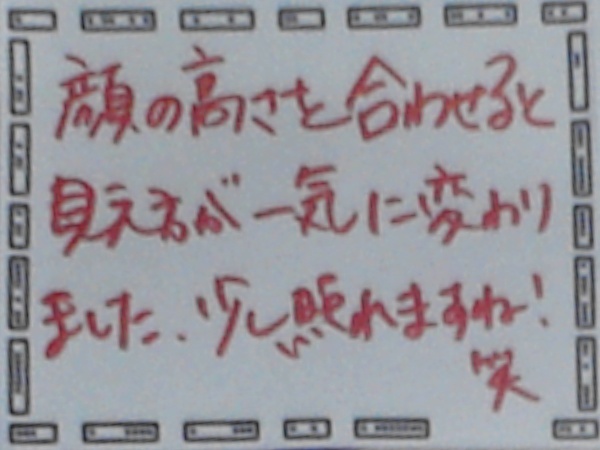 顔の高さを合わせると
見え方が一気に変わり
ました、少し照れますね!
笑